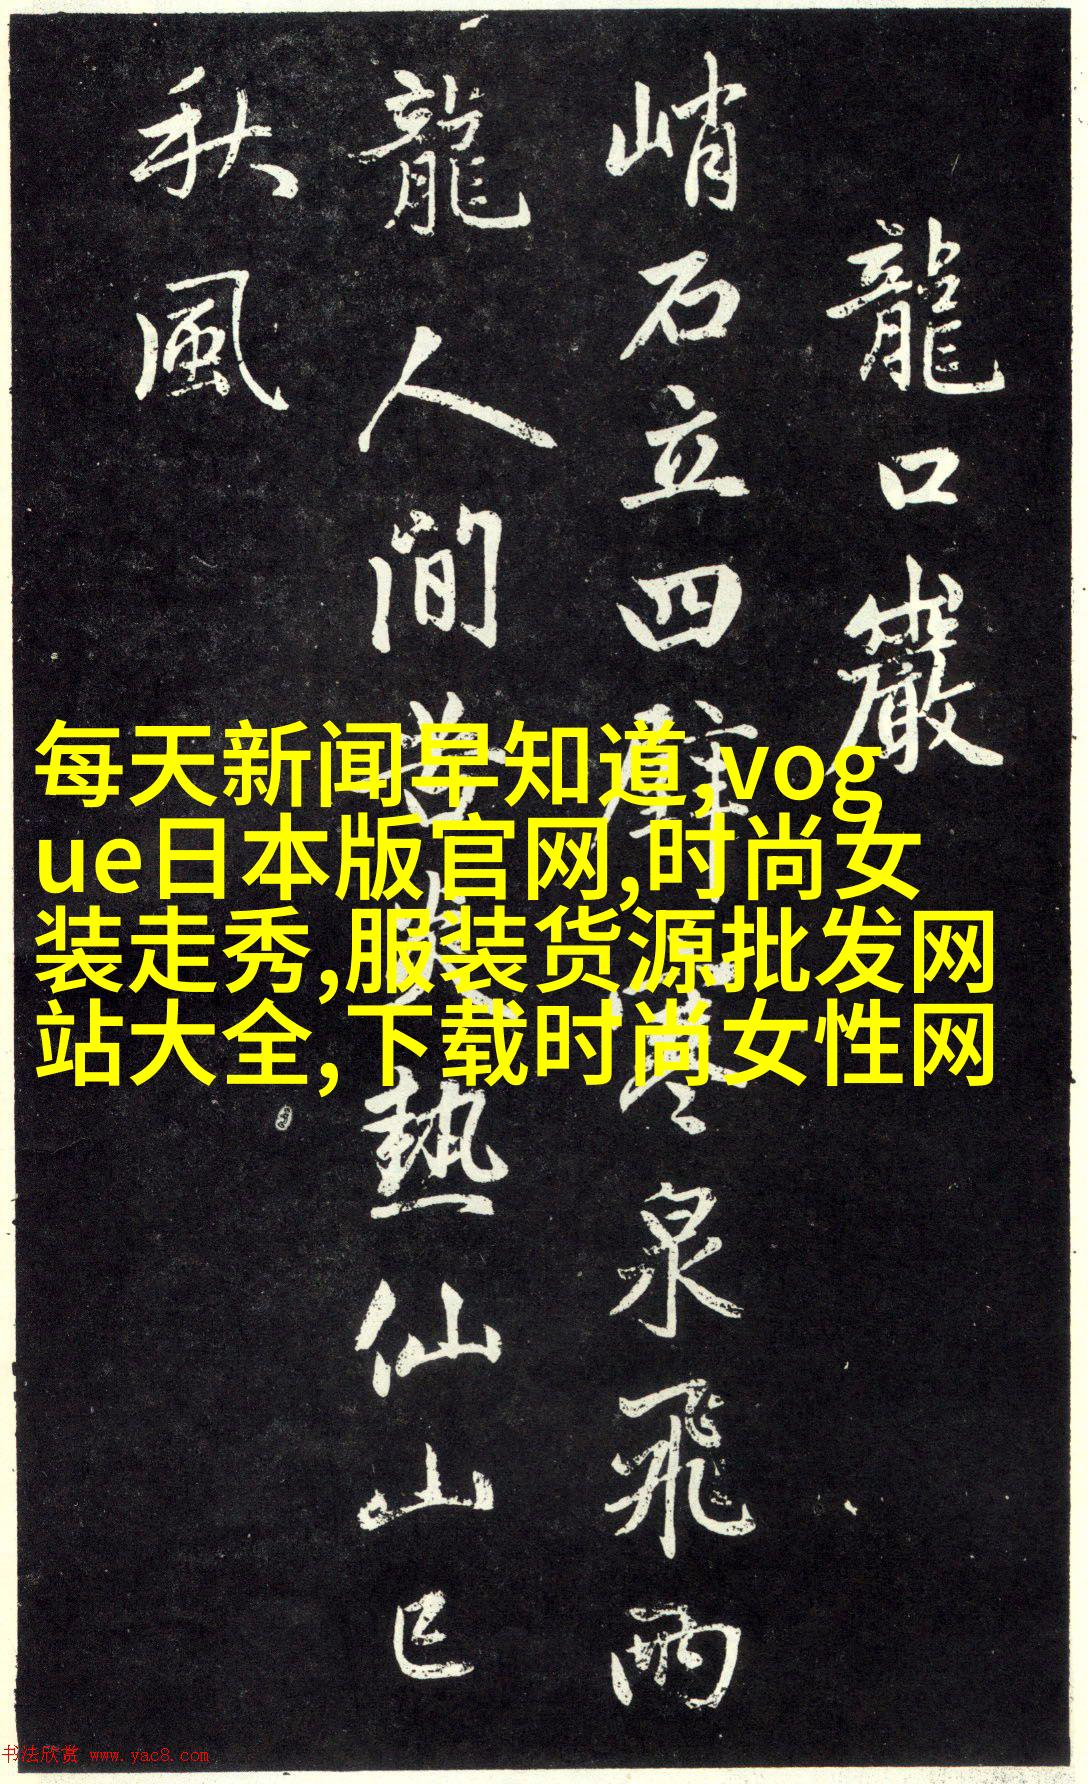 龍口巖
峭石立四壁寒泉飛兩
龍人間苦炎熱仙山已
秋風
每天新闻早知道,vog
ue日本版官网,时尚女
装走秀,服装货源批发网
站大全,下载时尚女性网
书法欣赏 www.yac8.com